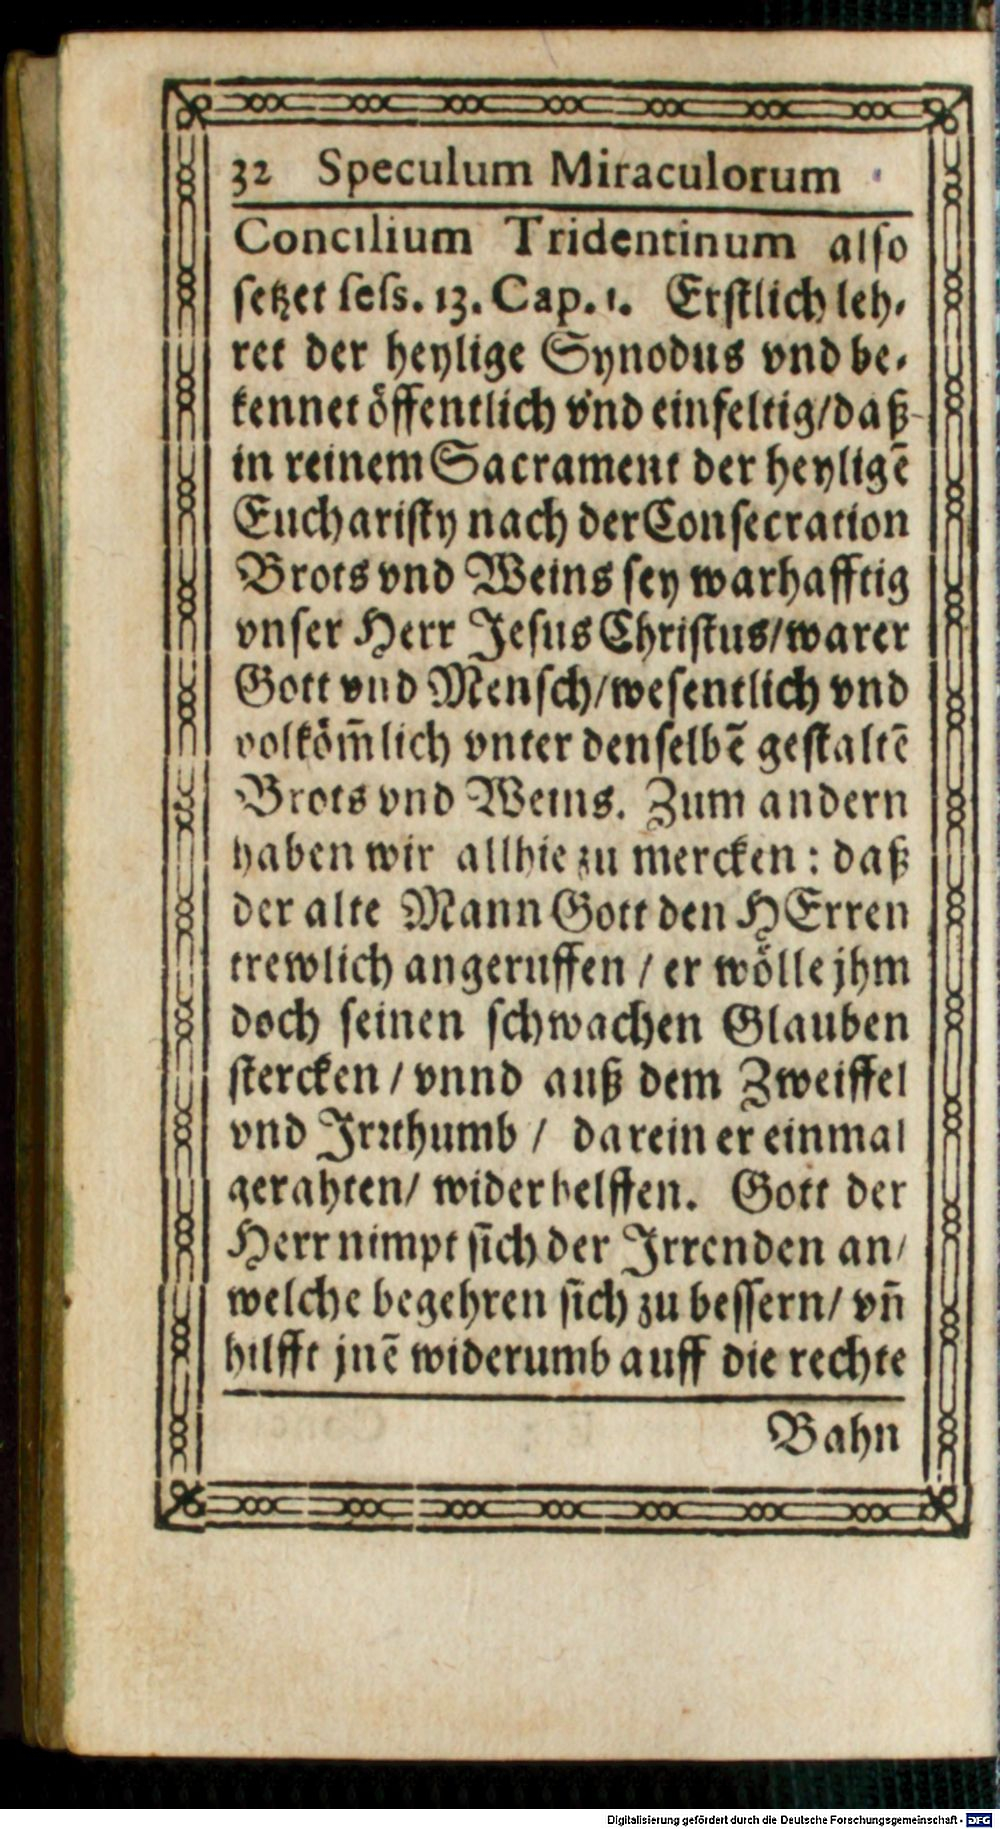 32 Speculum Miraculorum
Concilium Tridentinum also
setzet sess. 13. Cap. 1. Erstlich leh-
ret der heylige Synodus vnd be-
kennet öffentlich vnd einfeltig/daß
in reinem Sacrament der heyligē
Eucharisty nach der Consecration
Brots vnd Weins sey warhafftig
vnser Herr Jesus Christus/warer
Gott vnd Mensch/wesentlich vnd
volköm̄lich vnter denselbē gestaltē
Brots vnd Weins. Zum andern
haben wir allhie zu mercken: daß
der alte Mann Gott den HErren
trewlich angeruffen / er wölle jhm
doch seinen schwachen Glauben
stercken / vnnd auß dem Zweiffel
vnd Irrthumb / darein er einmal
gerahten/ widerhelffen. Gott der
Herr nimpt sich der Irrenden an/
welche begehren sich zu bessern/ vn̄
hilfft jnē widerumb auff die rechte
Bahn
Digitalisierung gefördert durch die Deutsche Forschungsgemeinschaft - DFG